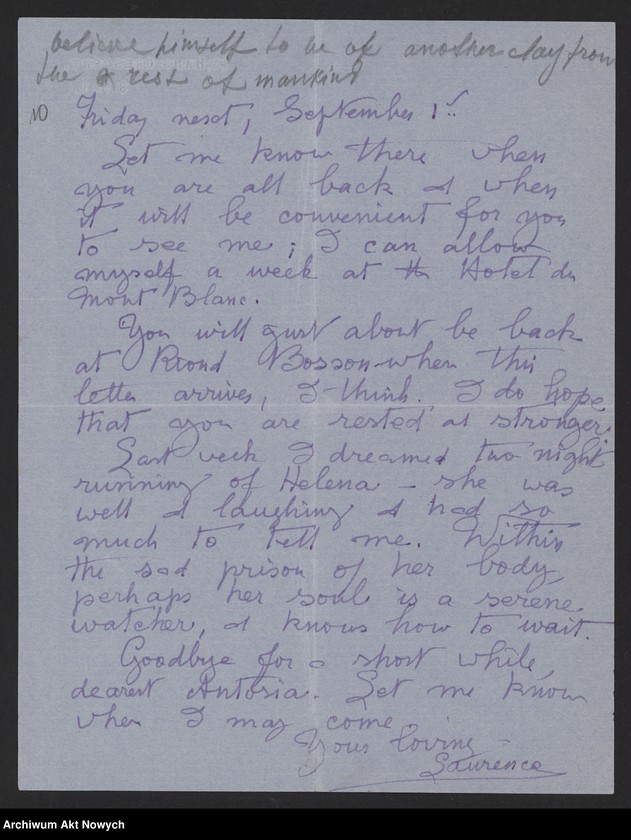 believe himself to be of another clay from
the rest of mankind
10
Friday next, September 1st
Let me know there when
you are all back & when
it will be convenient for you
to see me; I can allow
myself a week at the Hotel du
Mont Blanc.
You will just about be back
at Riond Bosson when this
letter arrives, I think. I do hope
that you are rested at stronger.
Last week I dreamed two night
running of Helena – she was
well & laughing & had so
much to tell me. Within
the sad prison of her body,
perhaps her soul is a serene
watcher, & knows how to wait.
Goodbye for a short while,
dearest Antosia. Let me know
when I may come
Your loving –
Laurence
Archiwum Akt Nowych